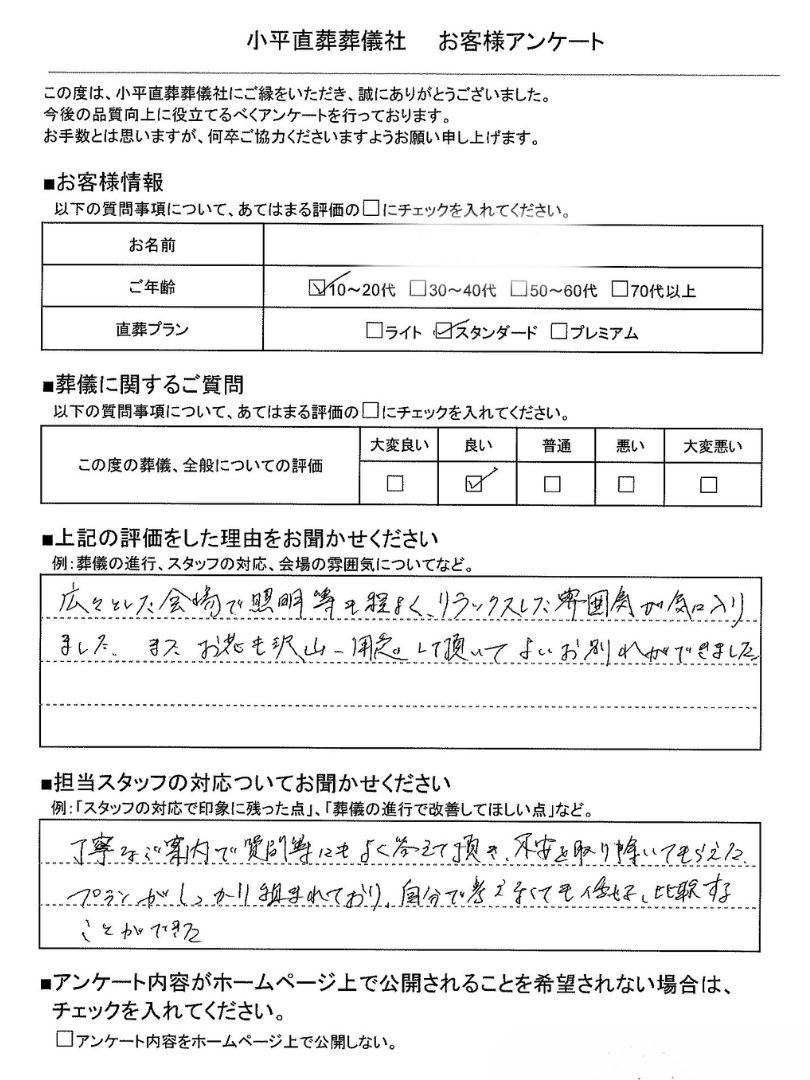 小平直葬葬儀社　お客様アンケート
この度は、小平直葬葬儀社にご縁をいただき、誠にありがとうございました。
今後の品質向上に役立てるべくアンケートを行っております。
お手数とは思いますが、何卒ご協力くださいますようお願い申し上げます。
■お客様情報
以下の質問事項について、あてはまる評価の□にチェックを入れてください。
お名前
ご年齢　☑10～20代　□30～40代　□50～60代　□70代以上
直葬プラン　□ライト　☑スタンダード　□プレミアム
■葬儀に関するご質問
以下の質問事項について、あてはまる評価の□にチェックを入れてください。
大変良い　良い　普通　悪い　大変悪い
この度の葬儀、全般についての評価　□　☑　□　□　□
■上記の評価をした理由をお聞かせください
例：葬儀の進行、スタッフの対応、会場の雰囲気についてなど。
広々とした会場で照明等も程よく、リラックスした雰囲気が気に入り
ました。また お花も沢山 用意して頂いて よいお別れができました
■担当スタッフの対応ついてお聞かせください
例：「スタッフの対応で印象に残った点」、「葬儀の進行で改善してほしい点」など。
丁寧なご案内で質問等にもよく答えて頂き、不安を取り除いてもらえた。
プランがしっかり組まれており、自分で考えなくても 比較する
ことができた
■アンケート内容がホームページ上で公開されることを希望されない場合は、
チェックを入れてください。
□アンケート内容をホームページ上で公開しない。